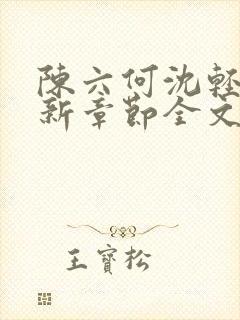 陳六何沈輕
新章節全文
王寶松